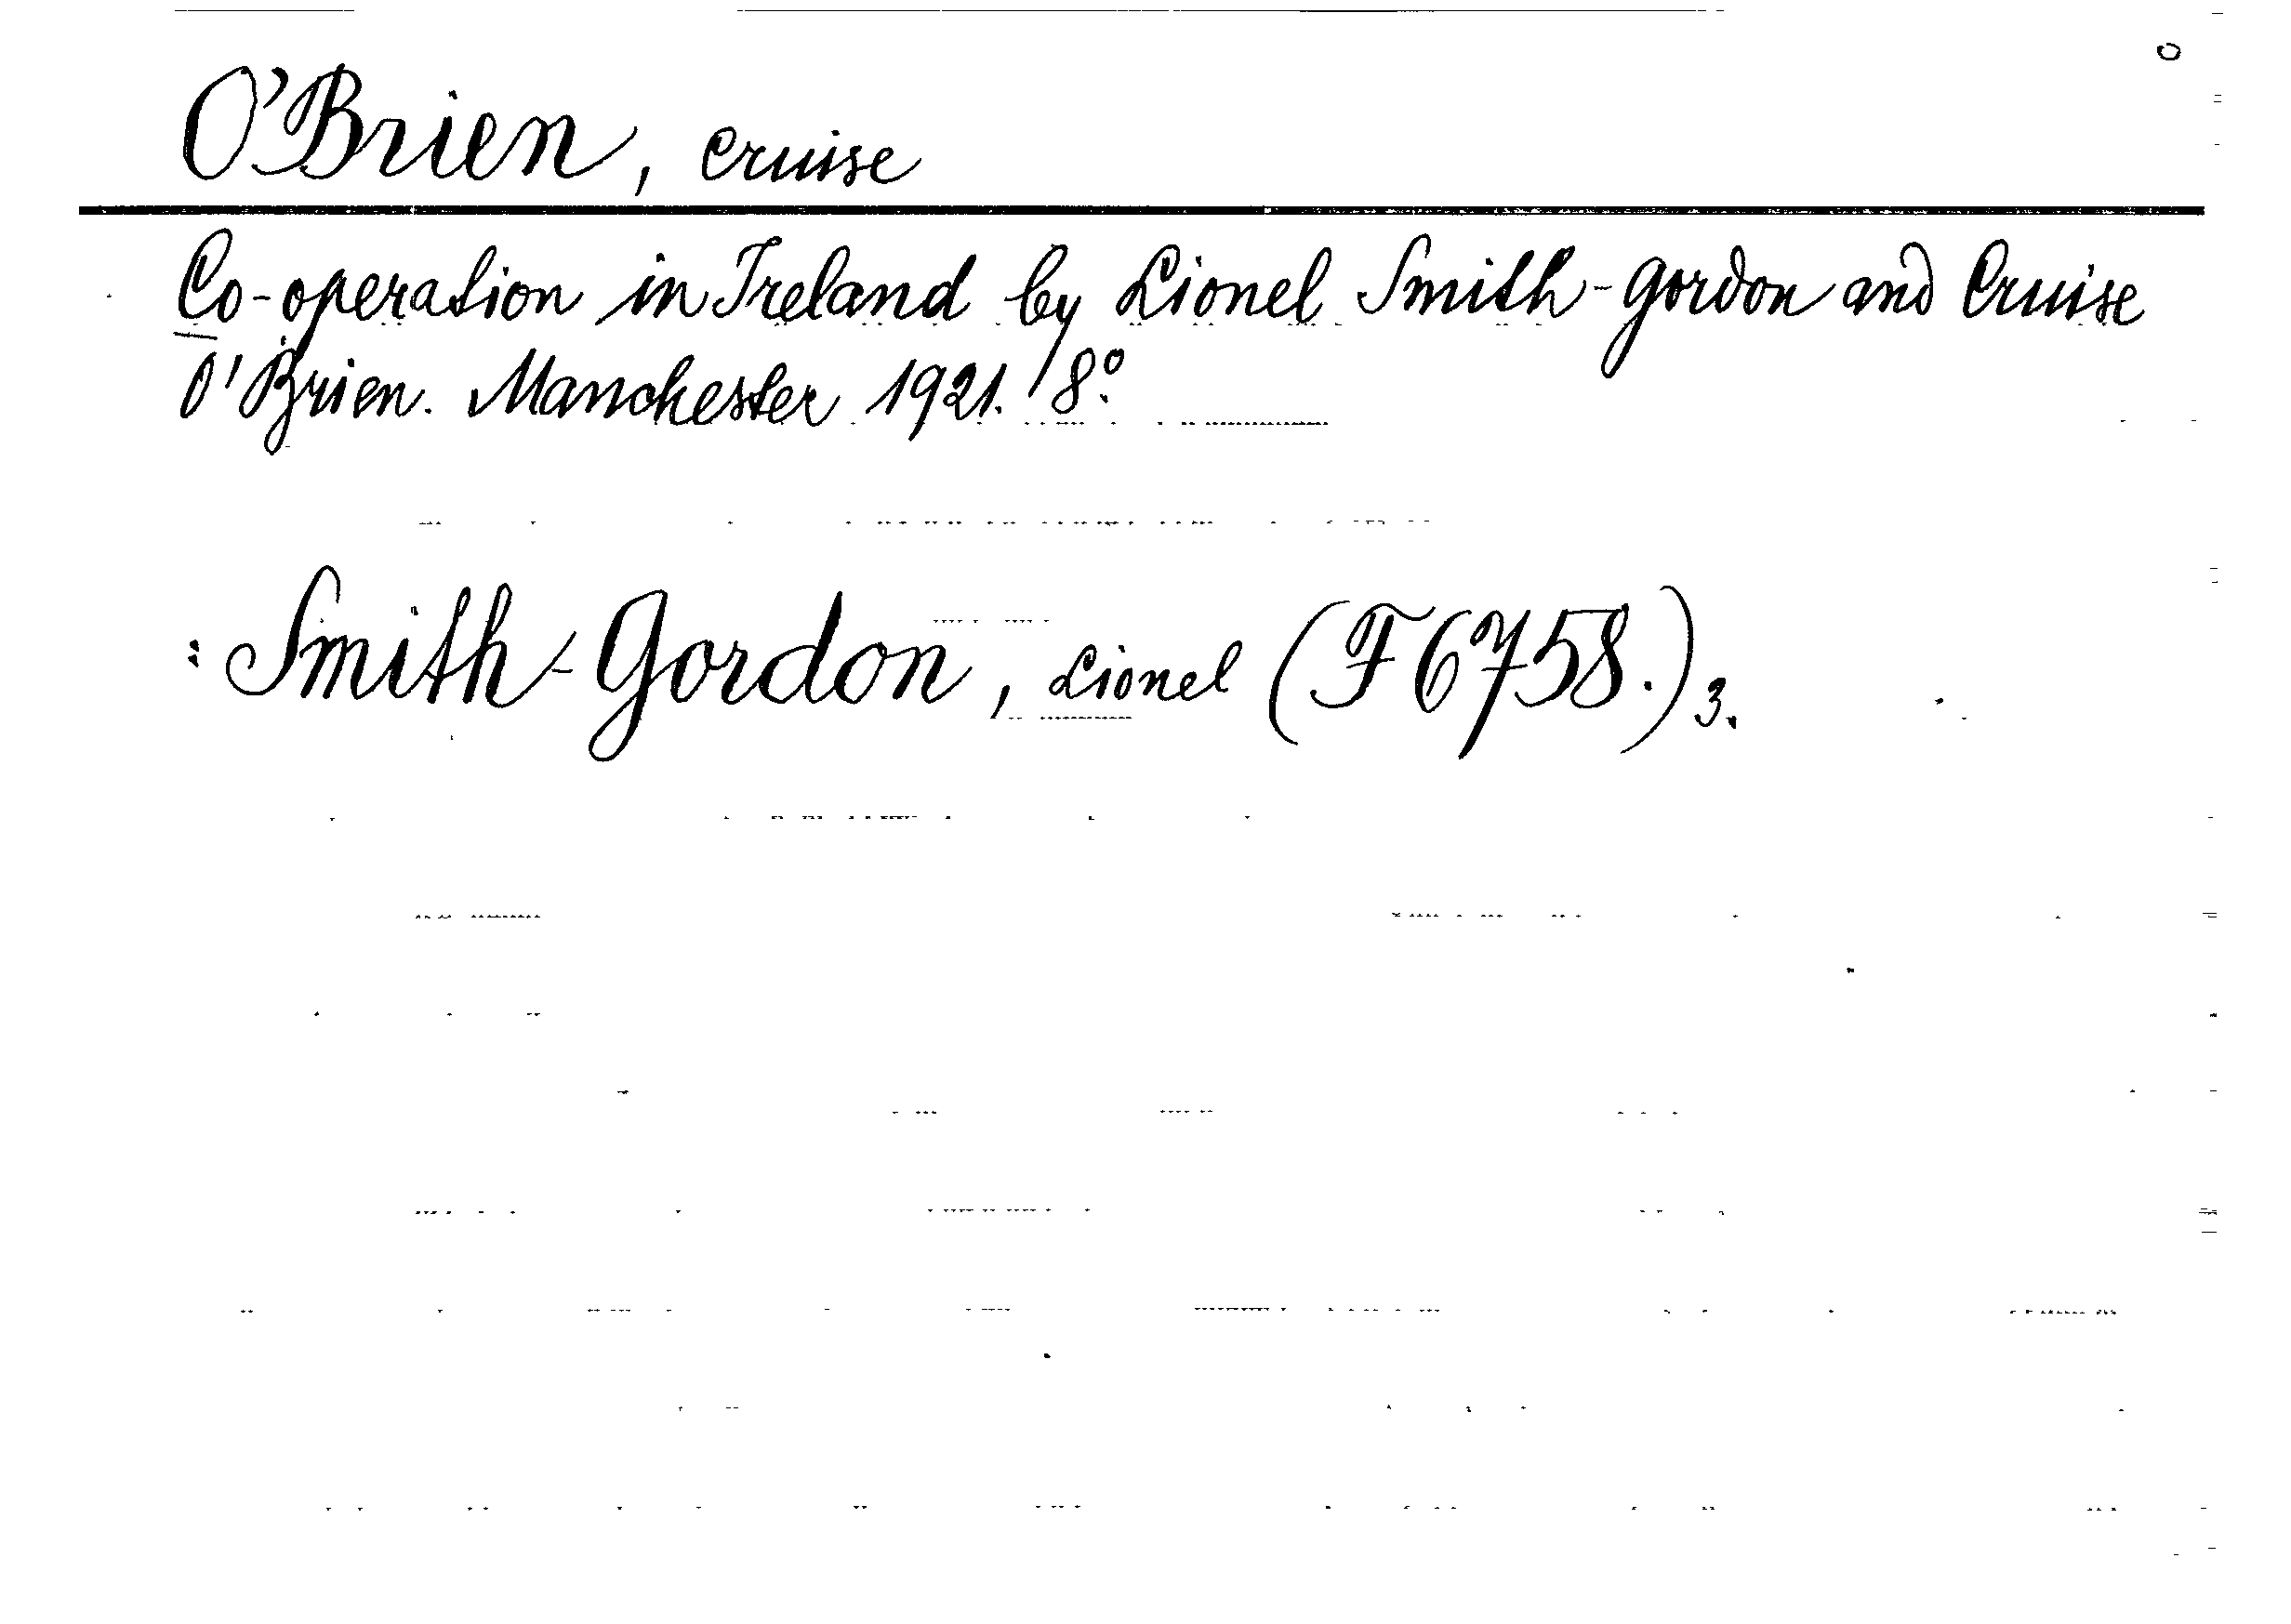 O'Brien, Cruise
Co-operation in Ireland by Lionel Smith-Gordon and Cruise
O'Brien. Manchester 1921. 8°.
: Smith-Gordon, Lionel (F 6758.) 3.